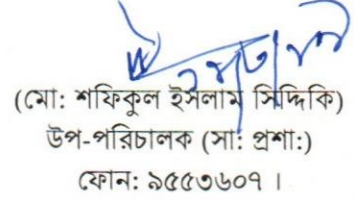 (মো: শফিকুল ইসলাম সিদ্দিকি)
উপ-পরিচালক (সা: প্রশা:)
ফোন: ৯৫৫৩৬০৭ ।